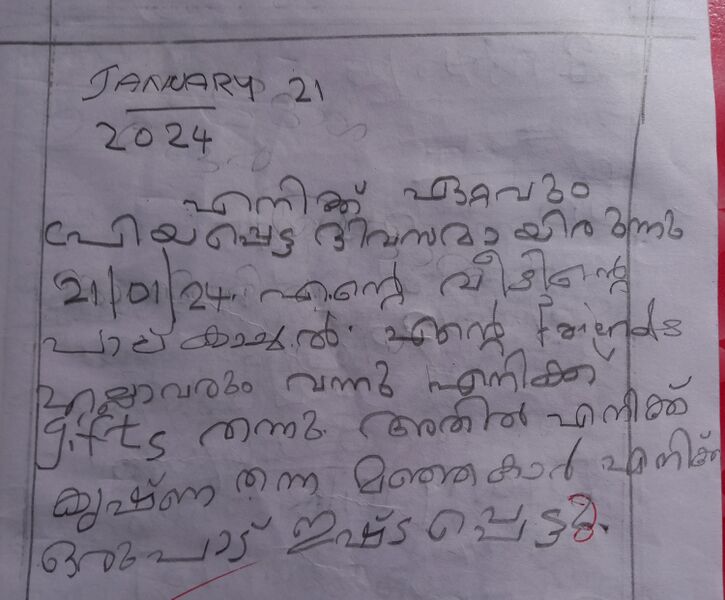 JANUARY 21
2024
എനിക്ക് ഏറ്റവും
പ്രിയപ്പെട്ട ദിവസമായിരുന്നു
21/01/24. എന്റെ വീടിന്റെ
പാല് കാച്ചൽ. എന്റെ Friends
എല്ലാവരും വന്നു എനിക്ക്
gifts തന്നു. അതിൽ എനിക്ക്
കൃഷ്ണ തന്ന മഞ്ഞകാർ എനിക്ക്
ഒരുപാട് ഇഷ്ടപ്പെട്ടു.